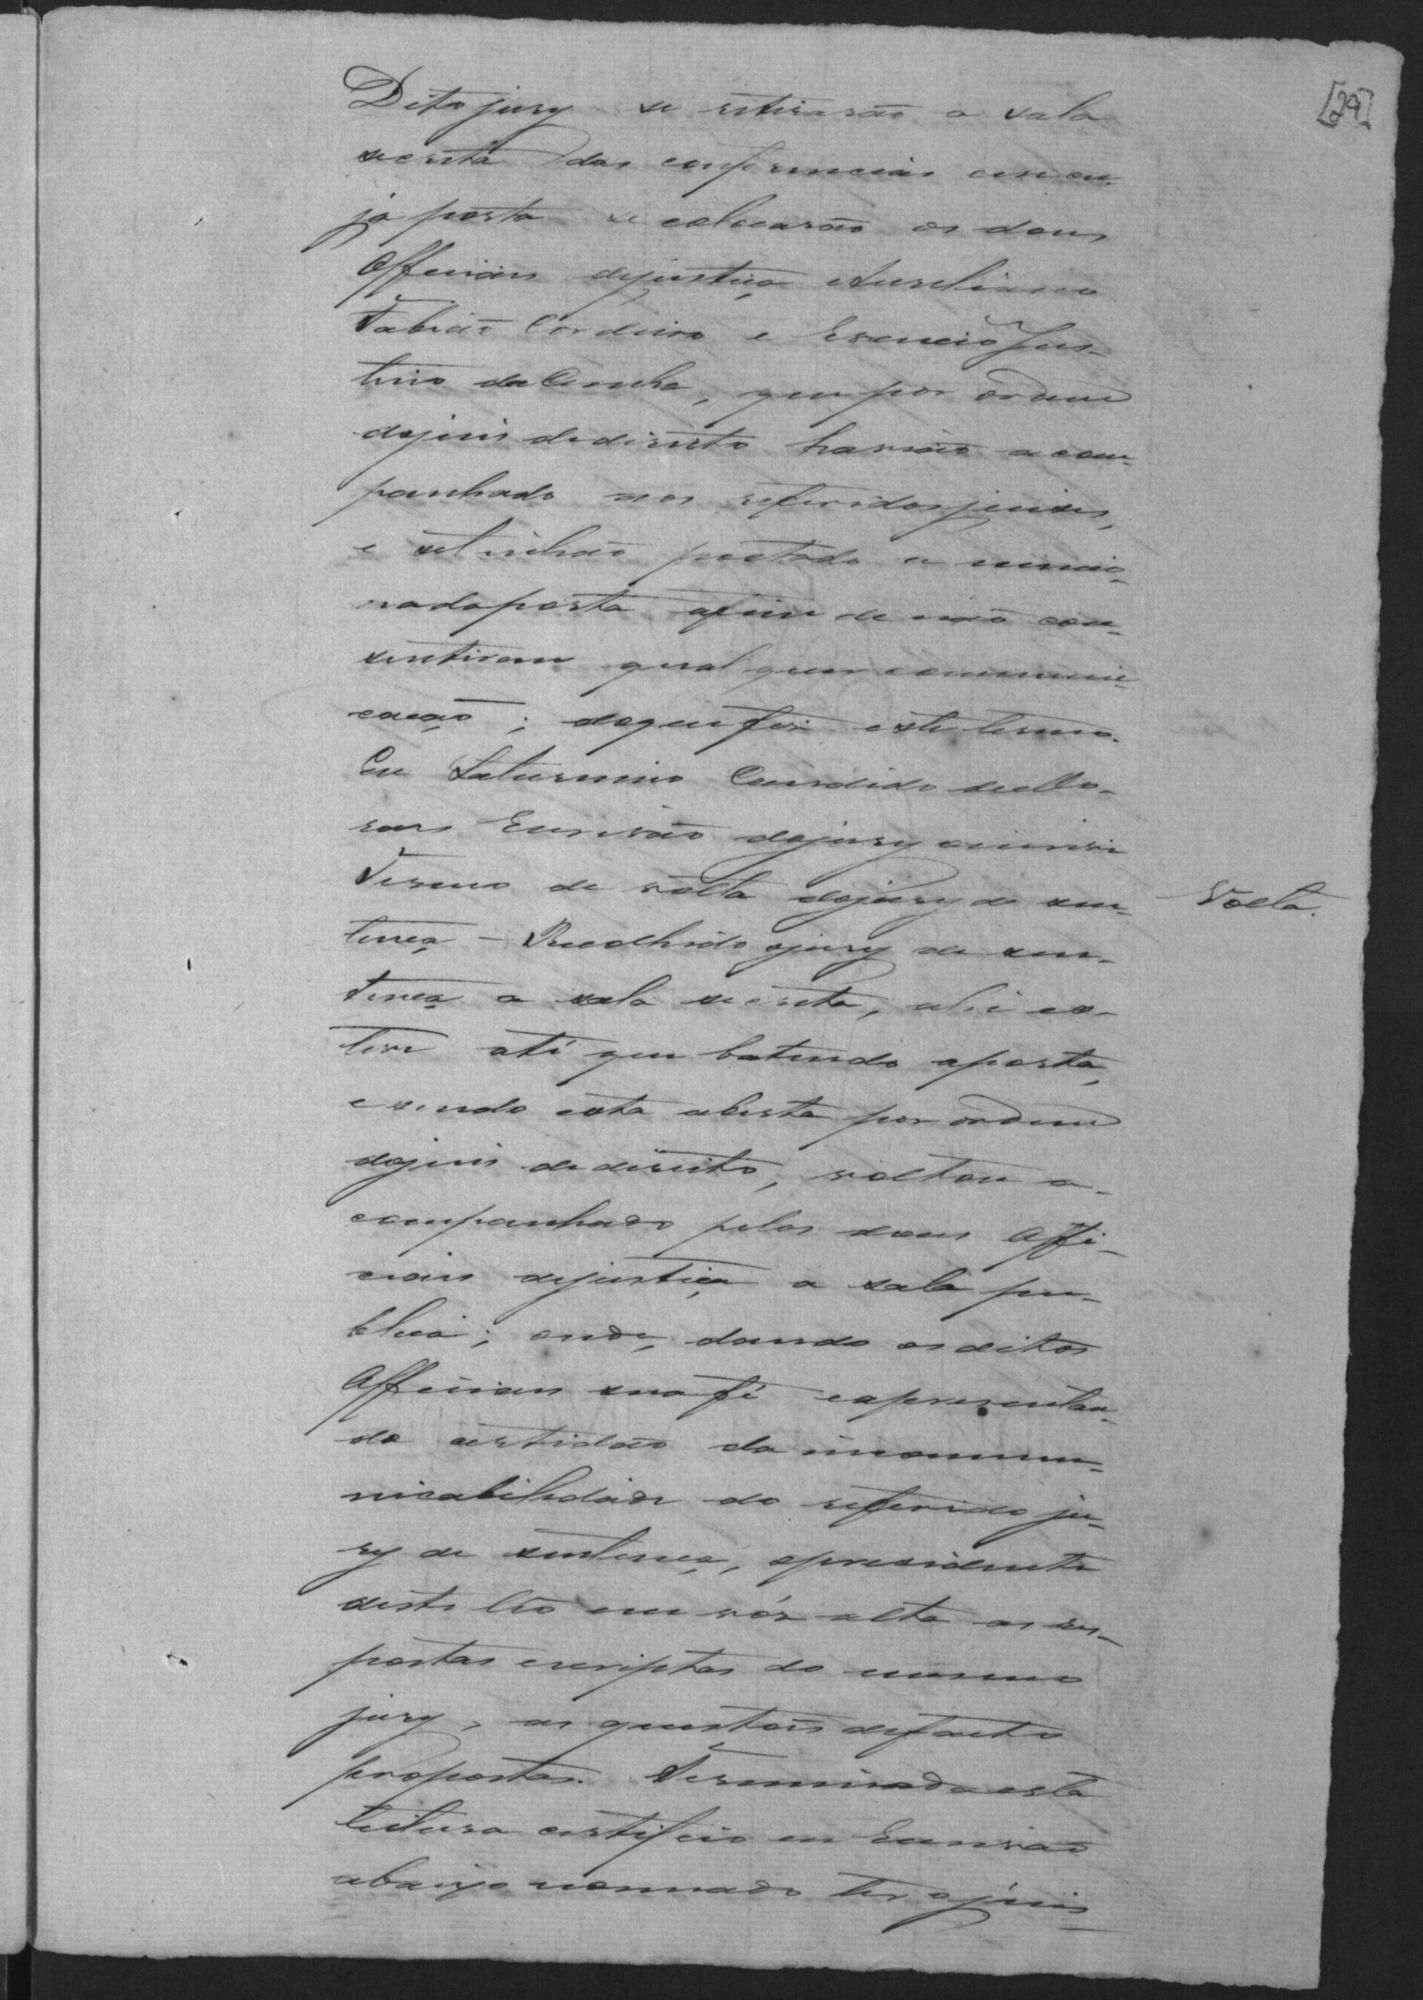 [29]
Dito jury se retirarão a sala
secreta das conferencias em cu-
ja porta se colocarão os dous
Officiáes dejustiça Aureliano
Fabião Cordeiro e Jus-
tino da Cunha, que por ordem
dojuis dedireito havião acom-
panhado aos referidos juises,
e setinhão postado a mencio-
nada porta afim de não con-
sentirem qualquer communi-
cação; doque fis este termo.
Eu Saturnino Candido de Mo-
raes Escrivão dojury escrevi
Termo de volta dojury de sen-
Volta.
tença – Recolhido ojury de sen-
tença a sala secreta, ahi es-
teve até que batendo aporta,
e sendo esta aberta por ordem
dojuis dedireito, voltou a-
companhado pelos dous Offi-
ciáes dejustiça a sala pu-
blica; onde, dando os ditos
Officiaes sua fé e apresentan-
do certidão da incommu-
nicabilidade do referido ju-
ry de sentença, opresidente
deste lêo em vóz alta as res-
postas escriptas do mesmo
jury, as questões defacto
propostas. Terminada esta
leitura certifico eu Escrivão
abaixo nomeado ter ojuis